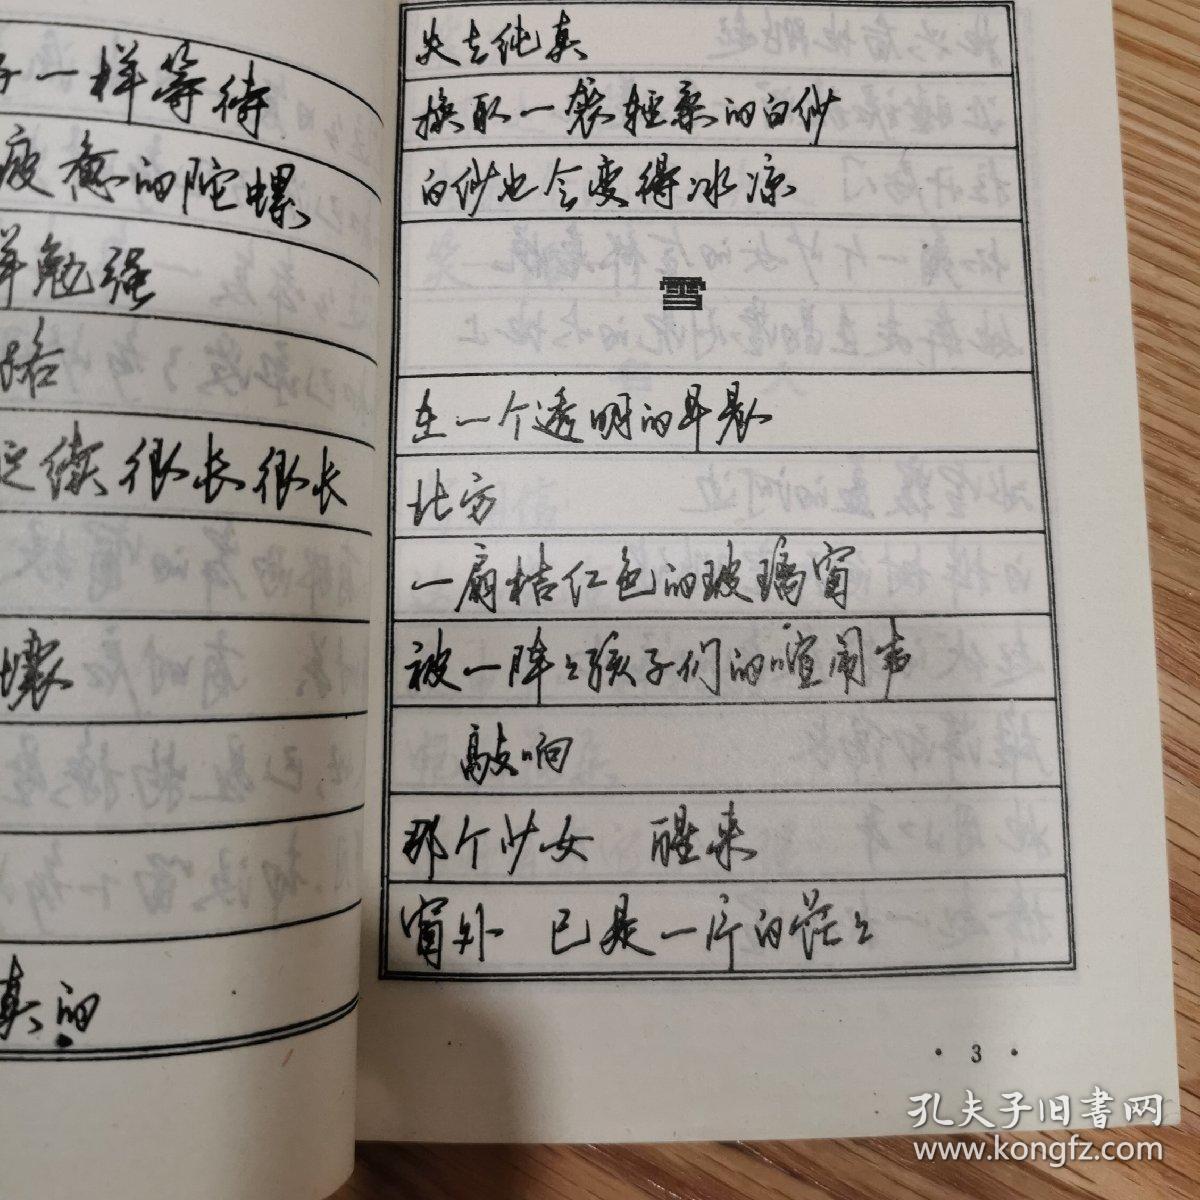 一样等待
疲惫的陀螺
样勉强
路
延续很长很长
壤
真的
失去纯真
换取一袭轻柔的白纱
白纱也会变得冰凉
雪
在一个透明的早晨
北方
一扇桔红色的玻璃窗
被一阵阵孩子们的喧闹声
敲响
那个少女 醒来
窗外 已是一片白茫茫
· 3 ·
孔夫子旧書网
www.kongfz.com